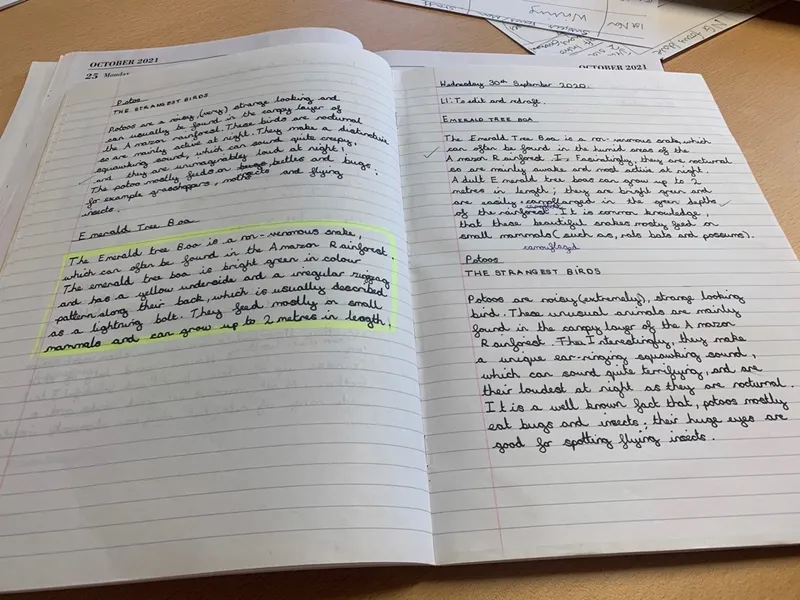 OCTOBER 2021
25 Monday
Potoo
THE STRANGEST BIRDS
Potoos are a noisy (very) strange looking and
can usually be found in the canopy layer of
the Amazon rainforest. These birds are nocturnal
so are mainly active at night. They make a distinctive
squawking sound, which can sound quite creepy,
and they are unimaginably loud at night!
The potoo mostly feeds on beetles and bugs;
for example grasshoppers, moths and flying
insects.
Emerald Tree Boa
The Emerald tree Boa is a non-venomous snake,
which can often be found in the Amazon Rainforest.
The emerald tree boa is bright green in colour
and has a yellow underside and a irregular zigzag
pattern along their back, which is usually described
as a lightning bolt. They feed mostly on small
mammals and can grow up to 2 metres in length.
OCTOBER 2021
Wednesday 30th September 2020.
LI: To edit and redraft.
EMERALD TREE BOA
The Emerald Tree Boa is a non-venomous snake, which
can often be found in the humid areas of the
Amazon Rainforest. I, Fasinatingly, they are nocturnal
so are mainly awake and most active at night.
Adult Emerald tree boas can grow up to 2
metres in length; they are bright green and
are easily camoflarged in the green depths
of the rainforest. It is common knowledge,
that these beautiful snakes mostly feed on
small mammals (such as, rats bats and possums).
camouflaged
Potoos
THE STRANGEST BIRDS
Potoos are noisy (extremely), strange looking
bird. These unusual animals are mainly
found in the canopy layer of the Amazon
Rainforest. The Interestingly, they make
a unique ear-ringing squawking sound,
which can sound quite terrifying, and are
their loudest at night as they are nocturnal.
It is a well known fact that, potoos mostly
eat bugs and insects; their huge eyes are
good for spotting flying insects.
1st Nov
Writing